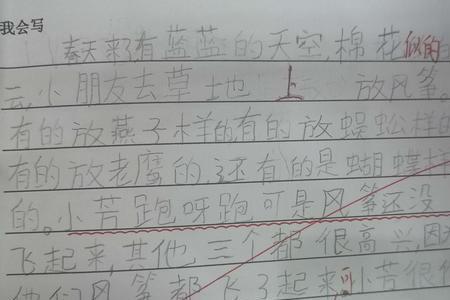 我会写
春天来了有蓝蓝的天空,棉花似的
云,小朋友去草地上放风筝。
有的放燕子样的有的放蜈蚣样的
有的放老鹰的,还有的是蝴蝶样
的。小芳跑呀跑可是风筝还没
飞起来,其他三个都很高兴,因
他们风筝都飞了起来可小芳很